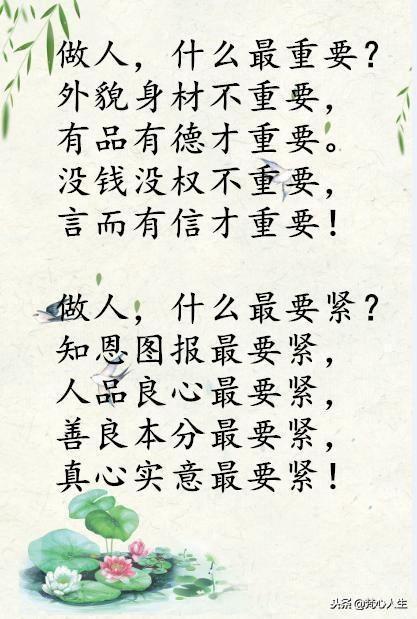 做人，什么最重要？
外貌身材不重要，
有品有德才重要。
没钱没权不重要，
言而有信才重要！
做人，什么最要紧？
知恩图报最要紧，
人品良心最要紧，
善良本分最要紧，
真心实意最要紧！
头条@梵心人生